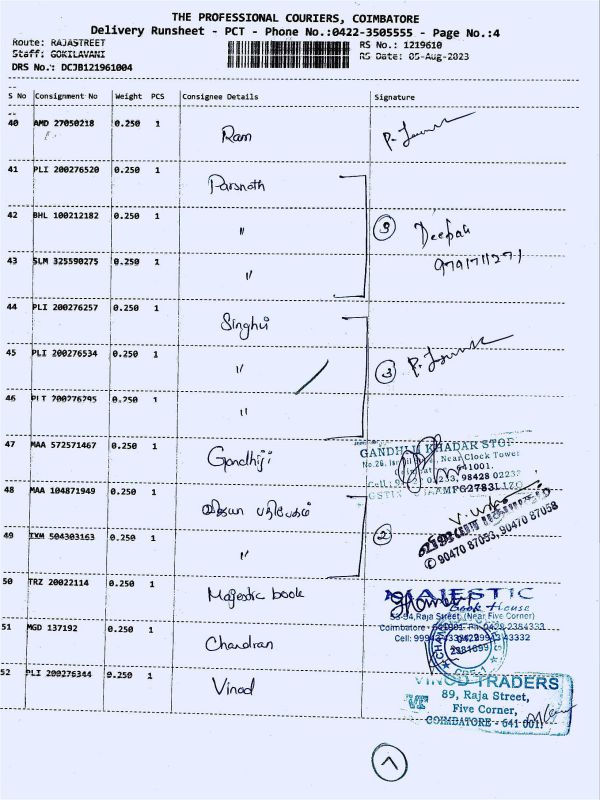 THE PROFESSIONAL COURIERS, COIMBATORE
Delivery Runsheet - PCT - Phone No.:0422-3505555 - Page No.:4
Route: RAJASTREET
Staff: GOKILAVANI
DRS No.: DCJB121961004
RS No.: 1219610
RS Date: 05-Aug-2023
S No Consignment No Weight PCS Consignee Details Signature
40 AMD 27050218 0.250 1 Ram
41 PLI 200276520 0.250 1 Parsnath
42 BHL 100212182 0.250 1 "
3 Deepak
9791711271
43 SLM 325590275 0.250 1 "
44 PLI 200276257 0.250 1 Singhvi
45 PLI 200276534 0.250 1 "
3
46 PLI 200276295 0.250 1 "
47 MAA 572571467 0.250 1 Gandhiji
GANDHIJI KHADAR STOR
Near Clock Tower
641001.
98428 02232
48 MAA 104871949 0.250 1
2
90470 87053, 90470 87058
49 IXM 504303163 0.250 1 "
50 TRZ 20022114 0.250 1 Majestic book
MAJESTIC
Book House
53-54, Raja Street, (Near Five Corner)
Coimbatore - 641001.
Cell:
51 MGD 137192 0.250 1 Chandran
52 PLI 200276344 0.250 1 Vinod
VINOD TRADERS
89, Raja Street,
Five Corner,
COIMBATORE - 641 001.